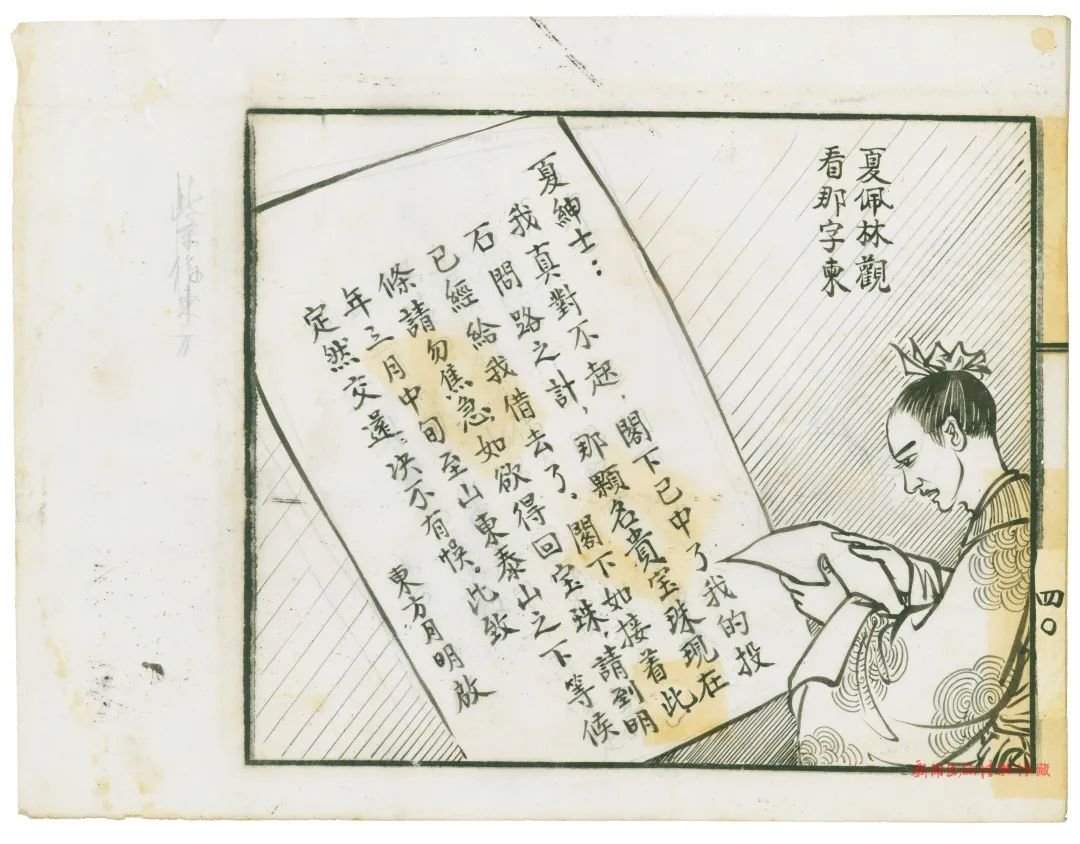 夏佩林觀
看那字柬
夏紳士：
我真對不起，閣下已中了我的投
石問路之計，那顆名貴宝珠現在
已經給我借去了。閣下如接着此
條請勿焦急，如欲得回宝珠，請到明
年三月中旬至山東泰山之下等候
定然交還．决不有悮。此致
東方月明啟
四〇